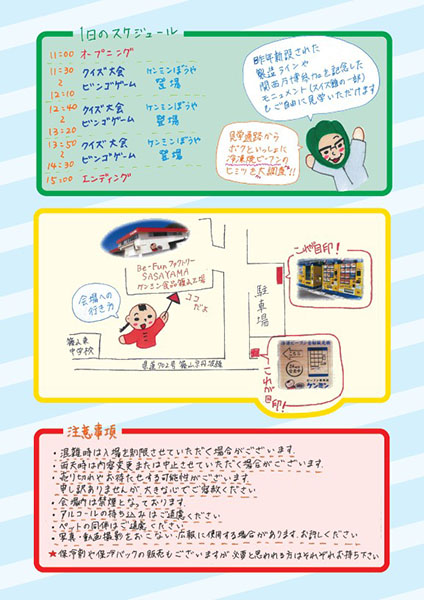 1日のスケジュール
11:00 オープニング
11:30 クイズ大会 ケンミンぼうや
〜 ビンゴゲーム 登場
12:10
12:40 クイズ大会 ケンミンぼうや
〜 ビンゴゲーム 登場
13:20
13:50 クイズ大会 ケンミンぼうや
〜 ビンゴゲーム 登場
14:30
15:00 エンディング
昨年新設された
製造ラインや
関西万博参加を記念した
モニュメント(スイス館の一部)
もご自由に見学いただけます
見学通路から
ボクといっしょに
冷凍焼ビーフンの
ヒミツを大調査!!
Be-Funファクトリー
SASAYAMA
ケンミン食品篠山工場
ココ
だよ
会場への
行き方
篠山東
中学校
県道702号 篠山京丹波線
駐車場
これが目印!
これが目印!
ケンミン
注意事項
・混雑時は入場を制限させていただく場合がございます。
・雨天時は内容変更または中止させていただく場合がございます。
・売り切れやお待たせする可能性がございます。
申し訳ありませんが、大きな心でご容赦ください。
・会場内は禁煙となっております。
・アルコールの持ち込みはご遠慮ください
・ペットの同伴はご遠慮ください
・写真・動画撮影をおこない、広報に使用する場合があります。お許しください
★保冷剤や保冷バックの販売もございますが、必要と思われる方はそれぞれお持ち下さい